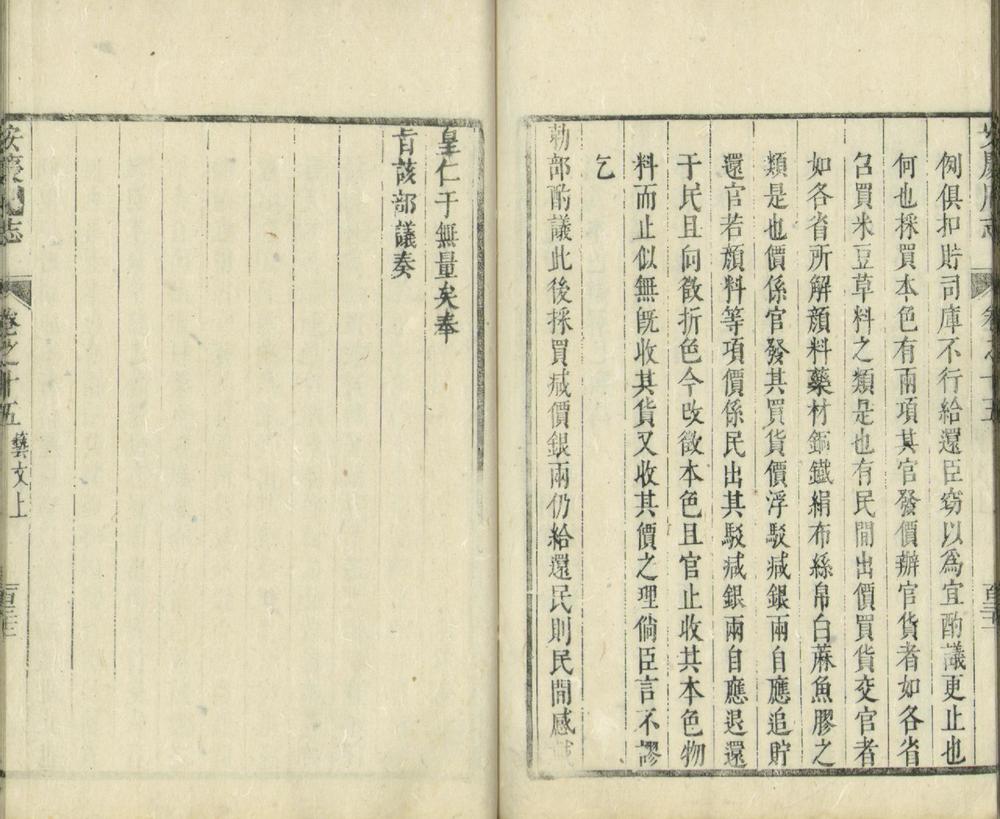 例俱扣貯司庫不行給還臣窃以為宜酌議更止也
何也採買本色有兩項其官發價辦官貨者如各省
召買米豆草料之類是也有民間出價買貨交官者
如各省所解顏料藥材銅鐵絹布絲帛白蔴魚膠之
類是也價係官發其買貨價浮駁減銀兩自應追貯
還官若顏料等項價係民出其駁減銀兩自應退還
于民且向徵折色今改徵本色且官止收其本色物
料而止似無旣收其貨又收其價之理倘臣言不謬
乞
勅部酌議此後採買減價銀兩仍給還民則民間感
皇仁于無量矣奉
旨該部議奏
安慶府志
卷之十五
藝文上